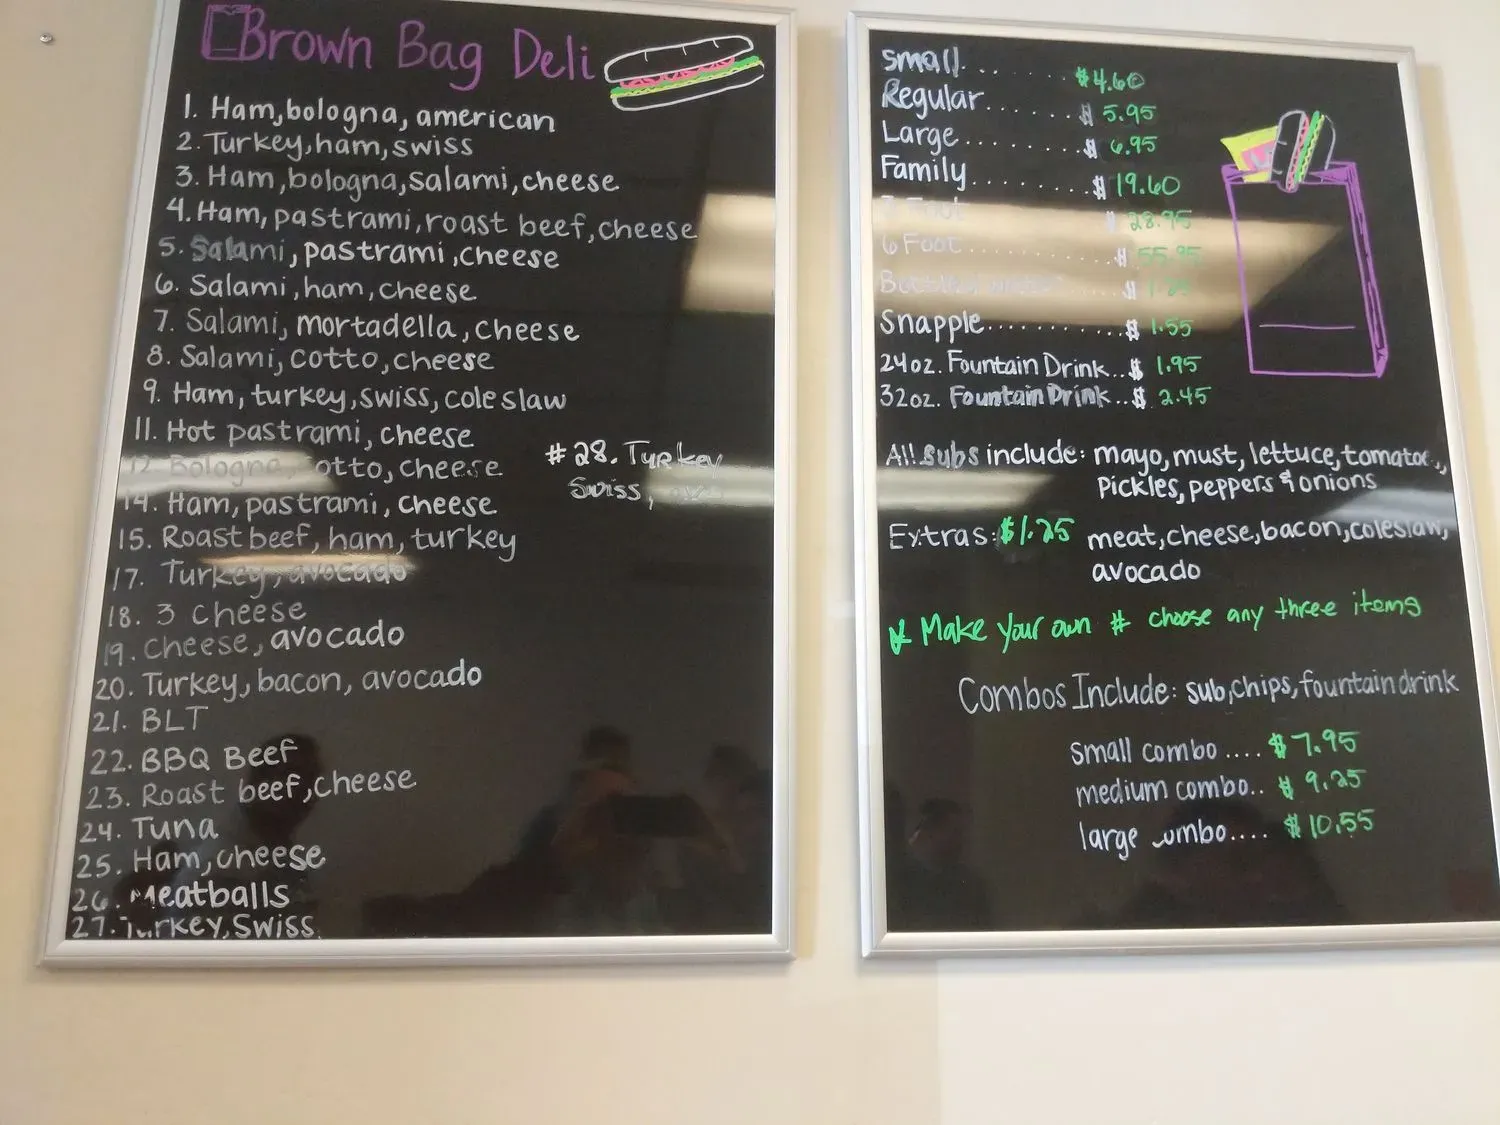 Brown Bag Deli
1. Ham, bologna, american
2. Turkey, ham, swiss
3. Ham, bologna, Salami, cheese
4. Ham, pastrami, roast beef, cheese
5. Salami, pastrami, cheese
6. Salami, ham, cheese
7. Salami, mortadella, cheese
8. Salami, cotto, cheese
9. Ham, turkey, swiss, coleslaw
11. Hot pastrami, cheese
12. Bologna, otto, cheese
14. Ham, pastrami, cheese
15. Roast beef, ham, turkey
17. Turkey, avocado
18. 3 cheese
19. Cheese, avocado
20. Turkey, bacon, avocado
21. BLT
22. BBQ Beef
23. Roast beef, cheese
24. Tuna
25. Ham, cheese
26. Meatballs
27. Turkey, Swiss
#28. Turkey
Swiss,
Small........ $4.60
Regular........ $5.95
Large........ $6.95
Family........ $19.60
$28.95
6 Foot........ $55.95
$
Snapple........ $1.55
24oz. Fountain Drink..$ 1.95
32oz. Fountain Drink..$ 2.45
All subs include: mayo, must, lettuce, tomatoe,
Pickles, peppers & onions
Extras: $1.25 meat, cheese, bacon, coleslaw,
avocado
Make your own # choose any three items
Combos Include: sub, chips, fountain drink
Small combo .... $7.95
medium combo.. $9.25
large ombo.... $10.55